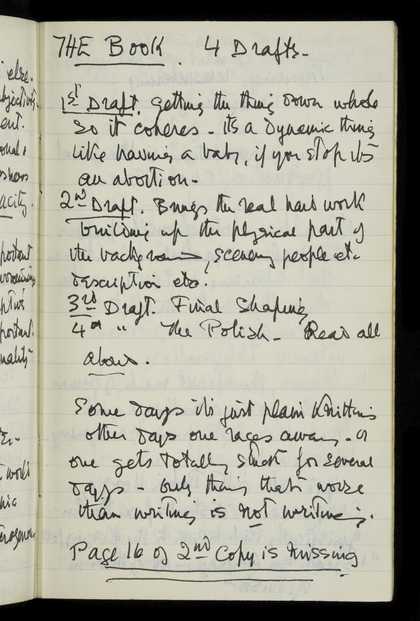 THE BOOK 4 Drafts-
1st Draft. Getting the thing down whole
so it coheres - its a dynamic thing
like having a baby, if you stop its
an abortion-
2nd Draft. Brings the real hard work
building up the physical part of
the background, scenery people etc-
description etc.
3rd Draft. Final Shaping
4th " The Polish- Read all
aloud.
Some days its just plain Knitting
other days one races away- or
one gets totally stuck for several
days - only thing that's worse
than writing is not writing.
Page 16 of 2nd Copy is missing
else.
ent.
acity.